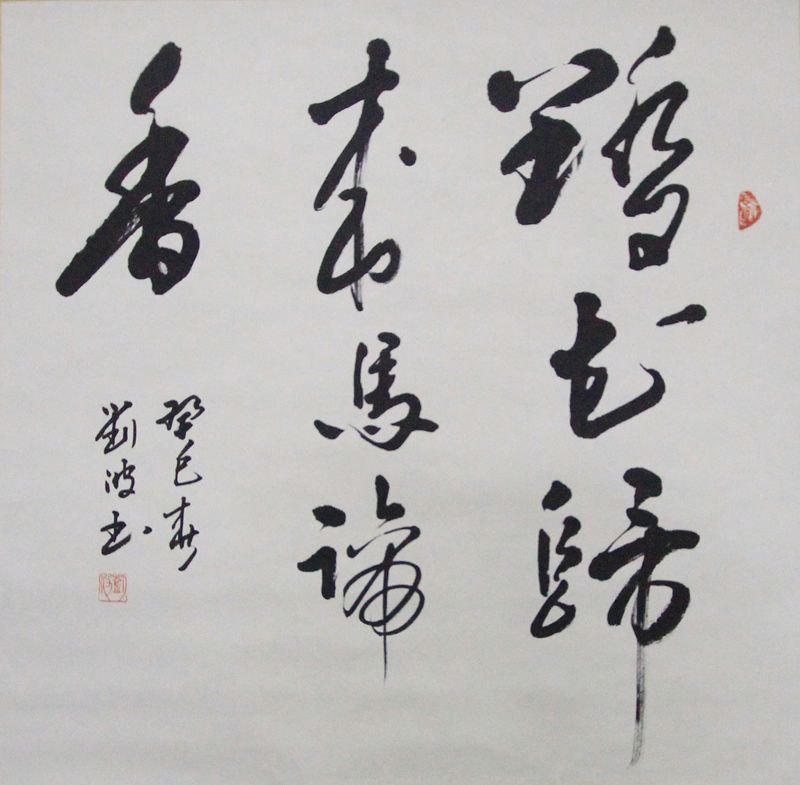 踏花歸
來馬蹄
香
癸巳春
劉波书